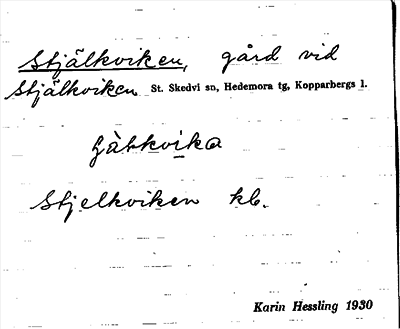 Stjälkviken, gård vid
Stjälkviken St. Skedvi sn, Hedemora tg, Kopparbergs l.
Stjelkviken kb.
Karin Hessling 1930